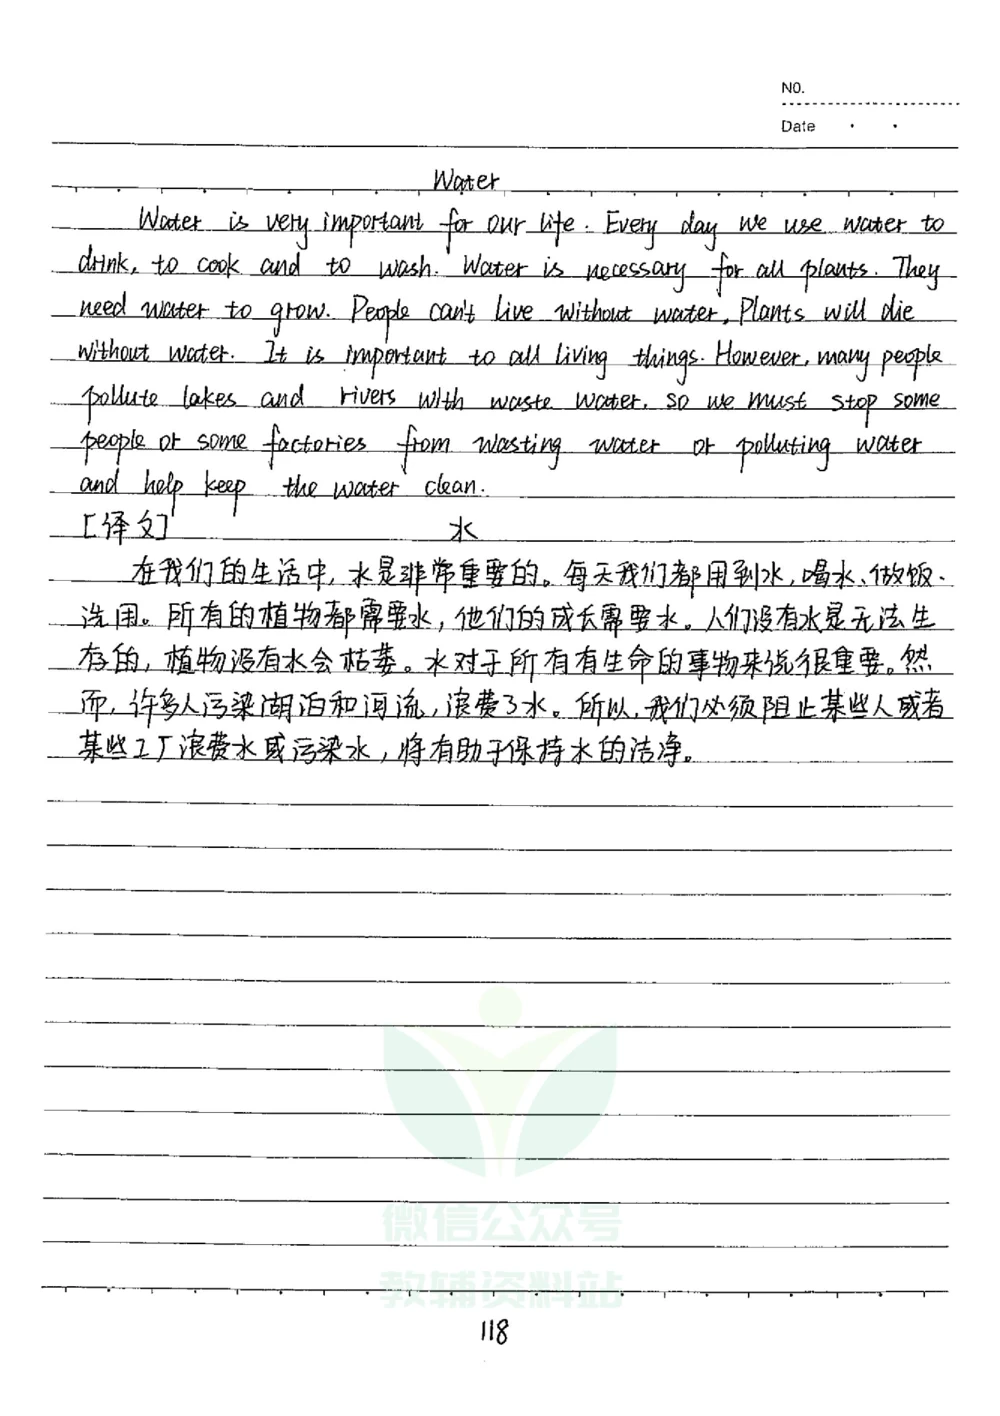 NO.
Date
Water
Water is very important for our life. Every day we use water to
drink, to cook and to wash. Water is necessary for all plants. They
need water to grow. People can't live without water, Plants will die
without water. It is important to all living things. However, many people
pollute lakes and rivers with waste water. so we must stop some
people or some factories from wasting water or polluting water
and help keep the water clean.
[译文] 水
在我们的生活中, 水是非常重要的。每天我们都用到水, 喝水、做饭、
洗用。所有的植物都需要水, 他们的成长需要水。人们没有水是无法生
存的, 植物没有水会枯萎。水对于所有有生命的事物来说很重要。然
而, 许多人污染湖泊和河流, 浪费了水。所以, 我们必须阻止某些人或者
某些工厂浪费水或污染水, 将有助于保持水的洁净。
微信公众号
教辅资料站
118